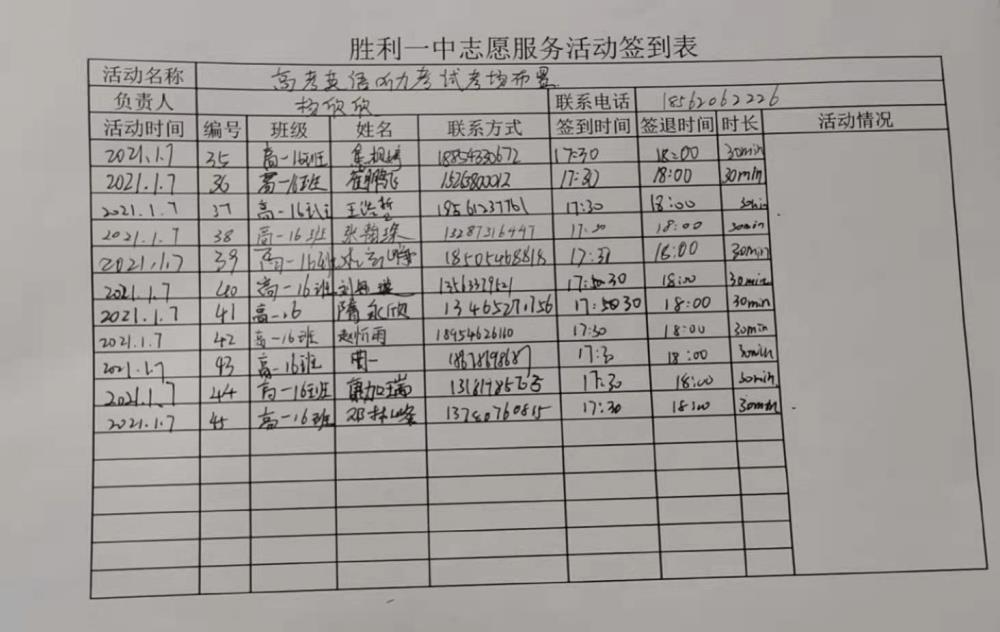 胜利一中志愿服务活动签到表
活动名称 高考英语听力考试考场布置
负责人 杨欣欣 联系电话 18562062226
活动时间 编号 班级 姓名 联系方式 签到时间 签退时间 时长 活动情况
2021.1.7 35 高一16班 18854330672 17:30 18:00 30min
2021.1.7 36 高一16班 崔鹏飞 15265800012 17:30 18:00 30min
2021.1.7 37 高一16班 王浩哲 19561237761 17:30 18:00 30min
2021.1.7 38 高一16班 张翰琛 13287316447 17:30 18:00 30min
2021.1.7 39 高一16班 18505468818 17:30 18:00 30min
2021.1.7 40 高一16班 13563379521 17:30 18:00 30min
2021.1.7 41 高一16 隋永欣 13465271156 17:30 18:00 30min
2021.1.7 42 高一16班 赵忻雨 18954626110 17:30 18:00 30min
2021.1.7 43 高一16班 周一 18678698687 17:30 18:00 30min
2021.1.7 44 高一16班 康加瑞 17:30 18:00 30min
2021.1.7 45 高一16班 邓林峰 13780760815 17:30 18:00 30min